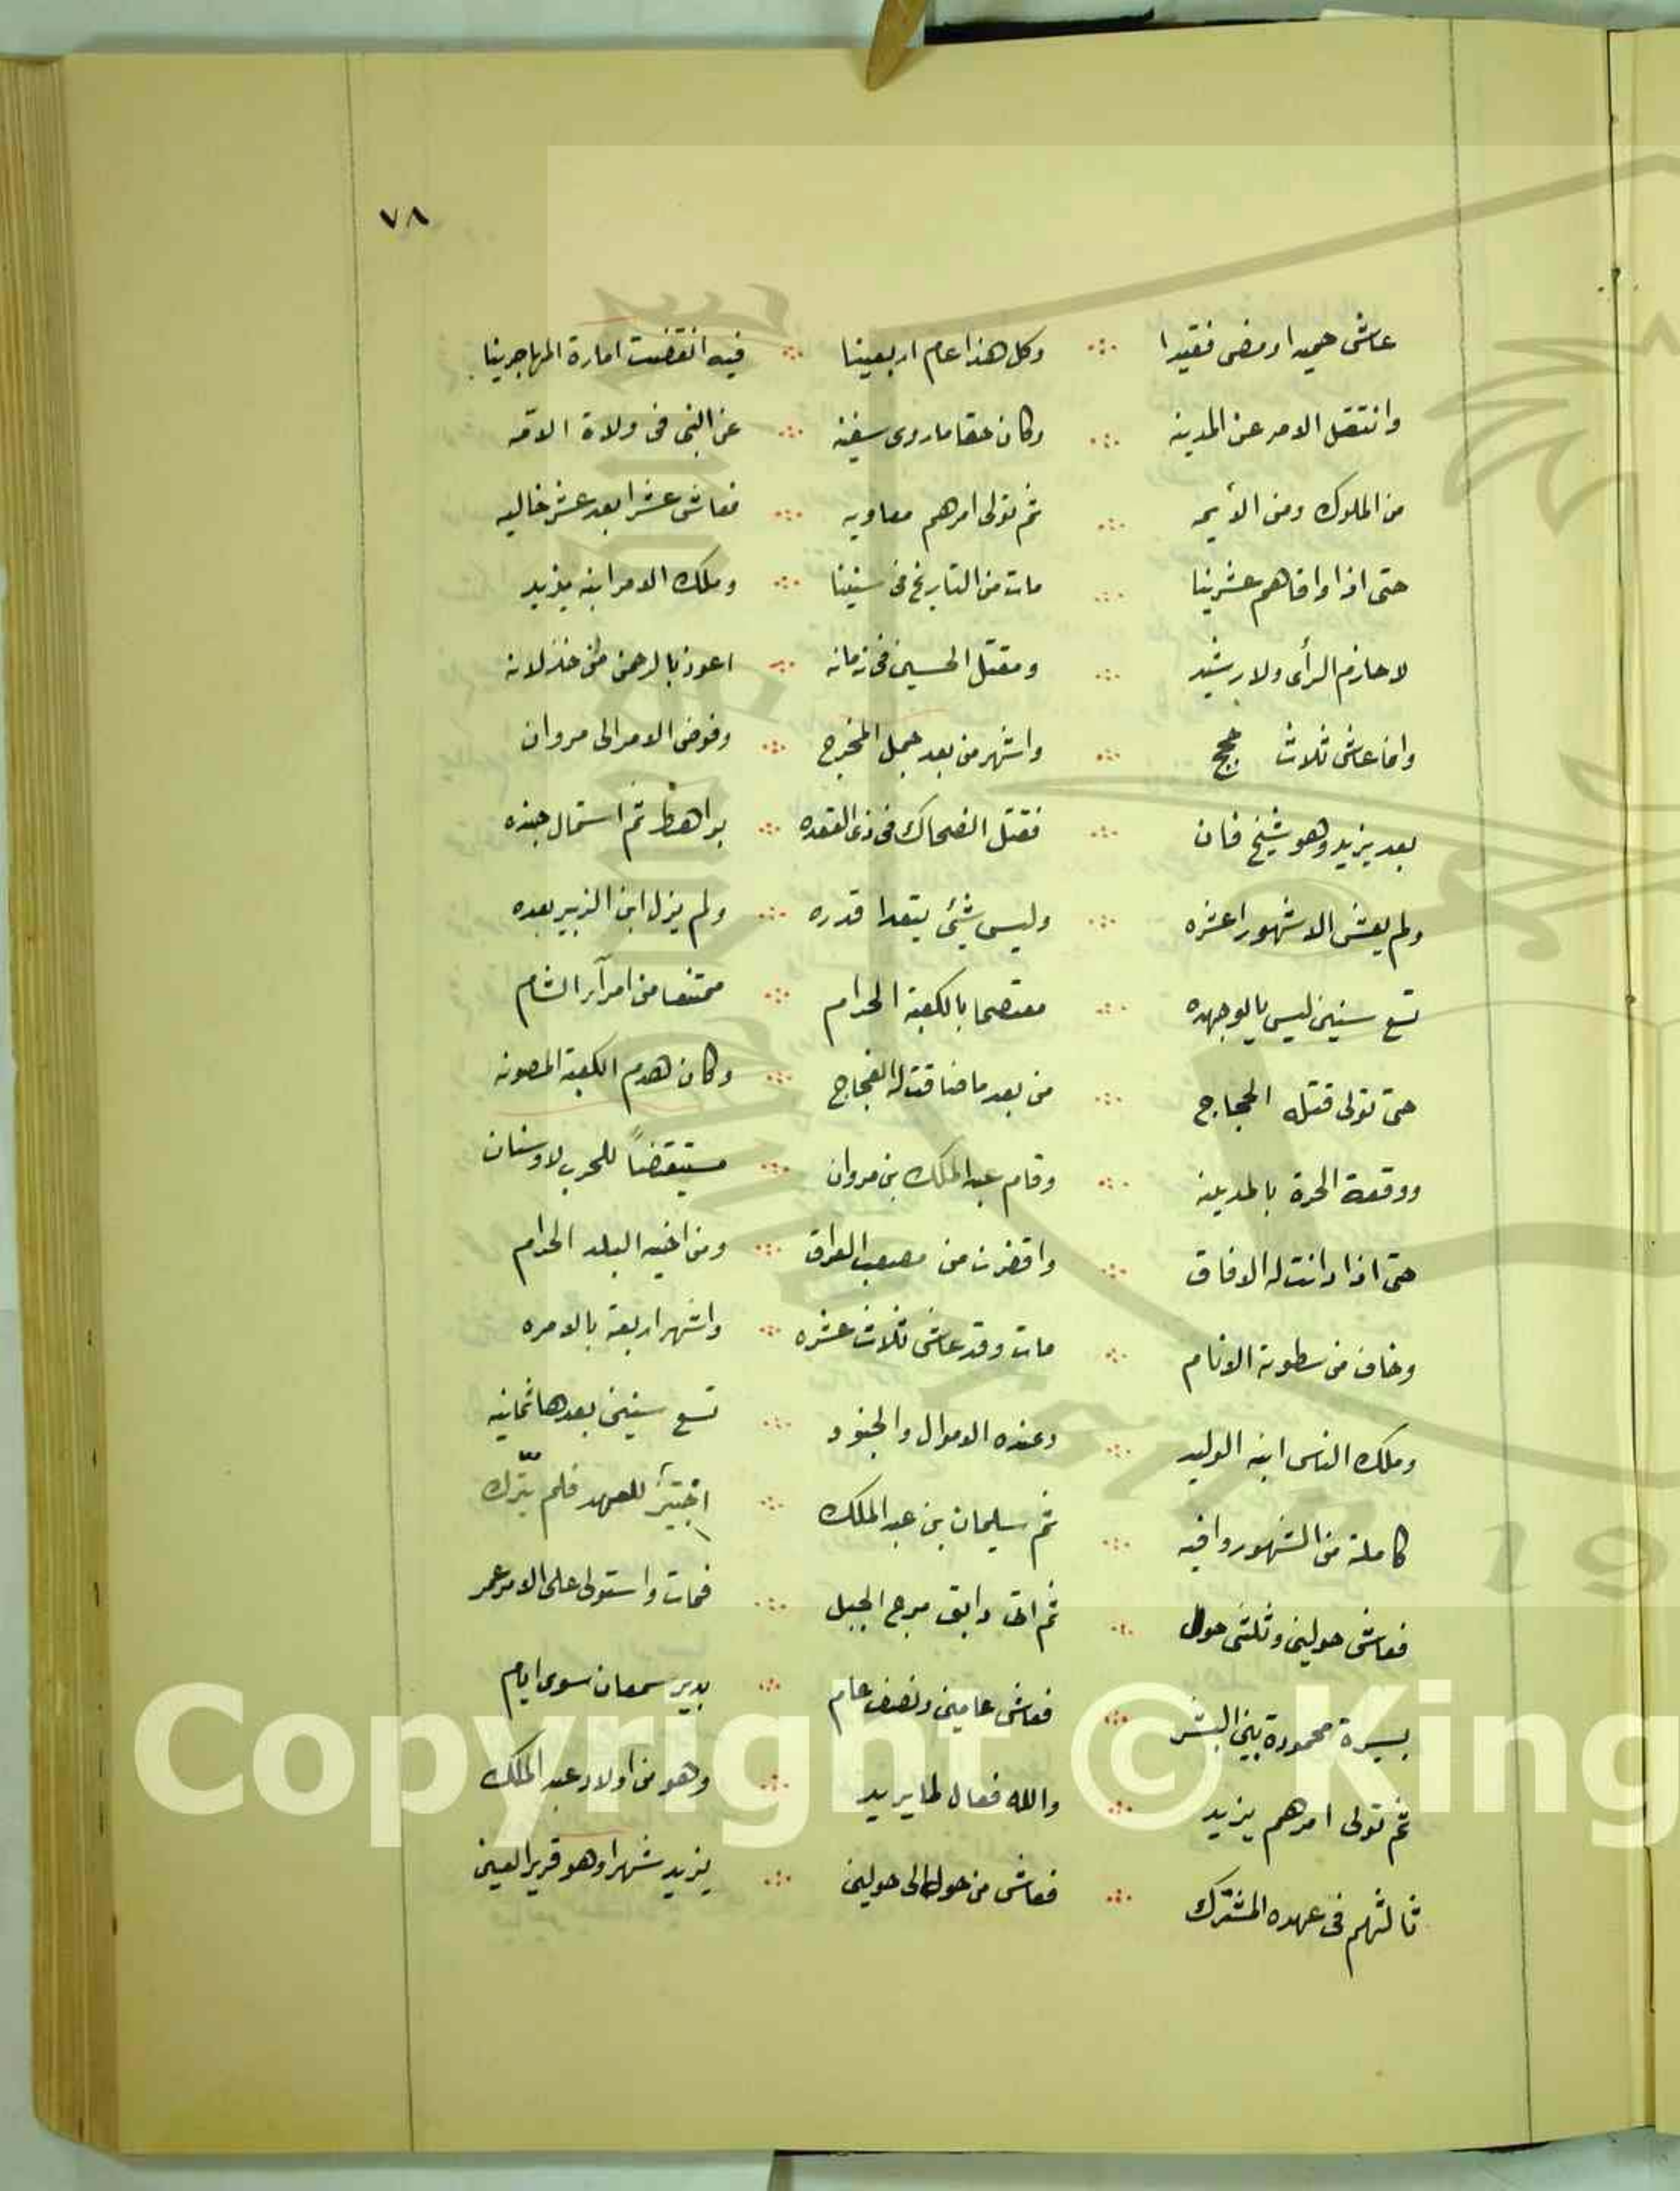 ٧٨
عاش حميدا ومضى فقيدا ∴ وكل هذا عام اربعينا ∴ فيه انقضت امارة المهاجرينا
وانتقل الامر عن المدينه ∴ وكان حقا ماروى سفينه ∴ عن النبى فى ولاة الامّه
من الملوك ومن الأيمه ∴ ثم تولى امرهم معاويه ∴ فعاش عشرا بعد عشر خاليه
حتى اذا وافاهم عشرينا ∴ مات من التاريخ فى ستينا ∴ وملك الامر ابنه يزيد
لا حازم الرأى ولا رشيد ∴ ومقتل الحسين فى زمانه ∴ اعوذ بالرحمن من خذلانه
وانما عاش ثلاث حجج ∴ واشهر من بعد حمل المخرج ∴ وفوض الامر الى مروان
بعد يزيد وهو شيخ فان ∴ فقتل الضحاك فى ذى القعده ∴ براهط ثم استمال جنده
ولم يعش الا شهورا عشره ∴ وليس شيئ يتعدا قدره ∴ ولم يزل ابن الزبير بعده
تسع سنين ليس يالو جهده ∴ معتصما بالكعبة الحرام ∴ ممتنعا من امرآء الشام
حتى تولى قتله الحجاج ∴ من بعد ما ضاقت له الفجاج ∴ وكان هدم الكعبة المصونه
ووقعة الحرة بالمدينه ∴ وقام عبد الملك بن مروان ∴ مستيقضاً للحرب لا وسنان
حتى اذا دانت له الافاق ∴ واقفرت من مصعب العراق ∴ ومن اخيه البلد الحرام
وخاف من سطوته الانام ∴ مات وقد عاش ثلاث عشره ∴ واشهر اربعة بالامره
وملك الناس ابنه الوليد ∴ وعنده الاموال والجنود ∴ تسع سنين بعدها ثمانيه
كاملة من الشهور وافيه ∴ ثم سليمان بن عبد الملك ∴ اختير للعهد فلم يترك
فعاش حولين وثلثى حول ∴ ثم اتى دابق مرج الجبل ∴ فمات واستولى على الامر عمر
بسيرة محمودة بين البشر ∴ فعاش عامين ونصف عام ∴ بدير سمعان سوى ايام
ثم تولى امرهم يزيد ∴ والله فعال لما يريد ∴ وهو من اولاد عبد الملك
ثالثهم فى عهده المشترك ∴ فعاش من حول الى حولين ∴ يزيد شهرا وهو قرير العين
Copyright © King
19